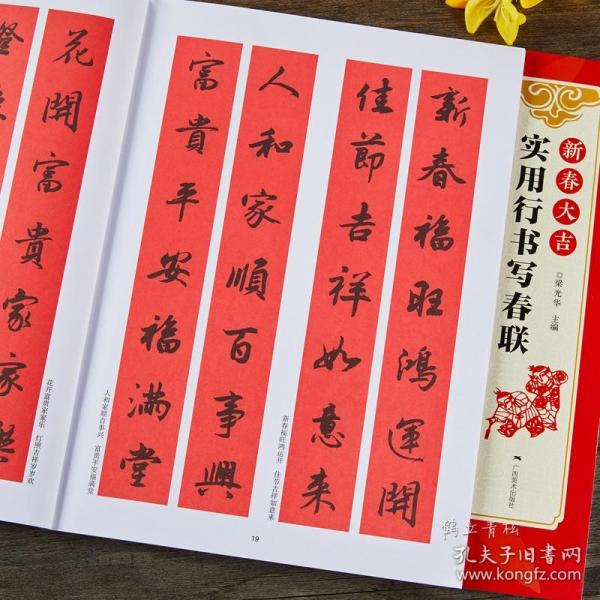 新春福旺鴻運開
佳節吉祥如意来
新春福旺鸿运开 佳节吉祥如意来
人和家順百事興
富貴平安福滿堂
人和家顺百事兴 富贵平安福满堂
19
花開富貴家家樂
花开富贵家家乐 灯明吉祥岁岁欢
新春大吉
实用行书写春联
◎梁光华 主编
广西美术出版社
鹤立青松
孔夫子旧书网
www.kongfz.com